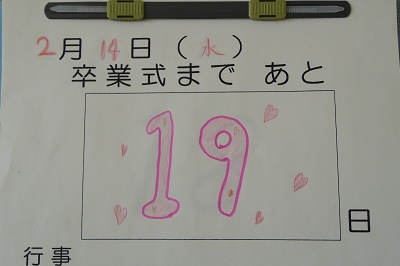 2月14日(水)
卒業式まで あと
19
日
行事